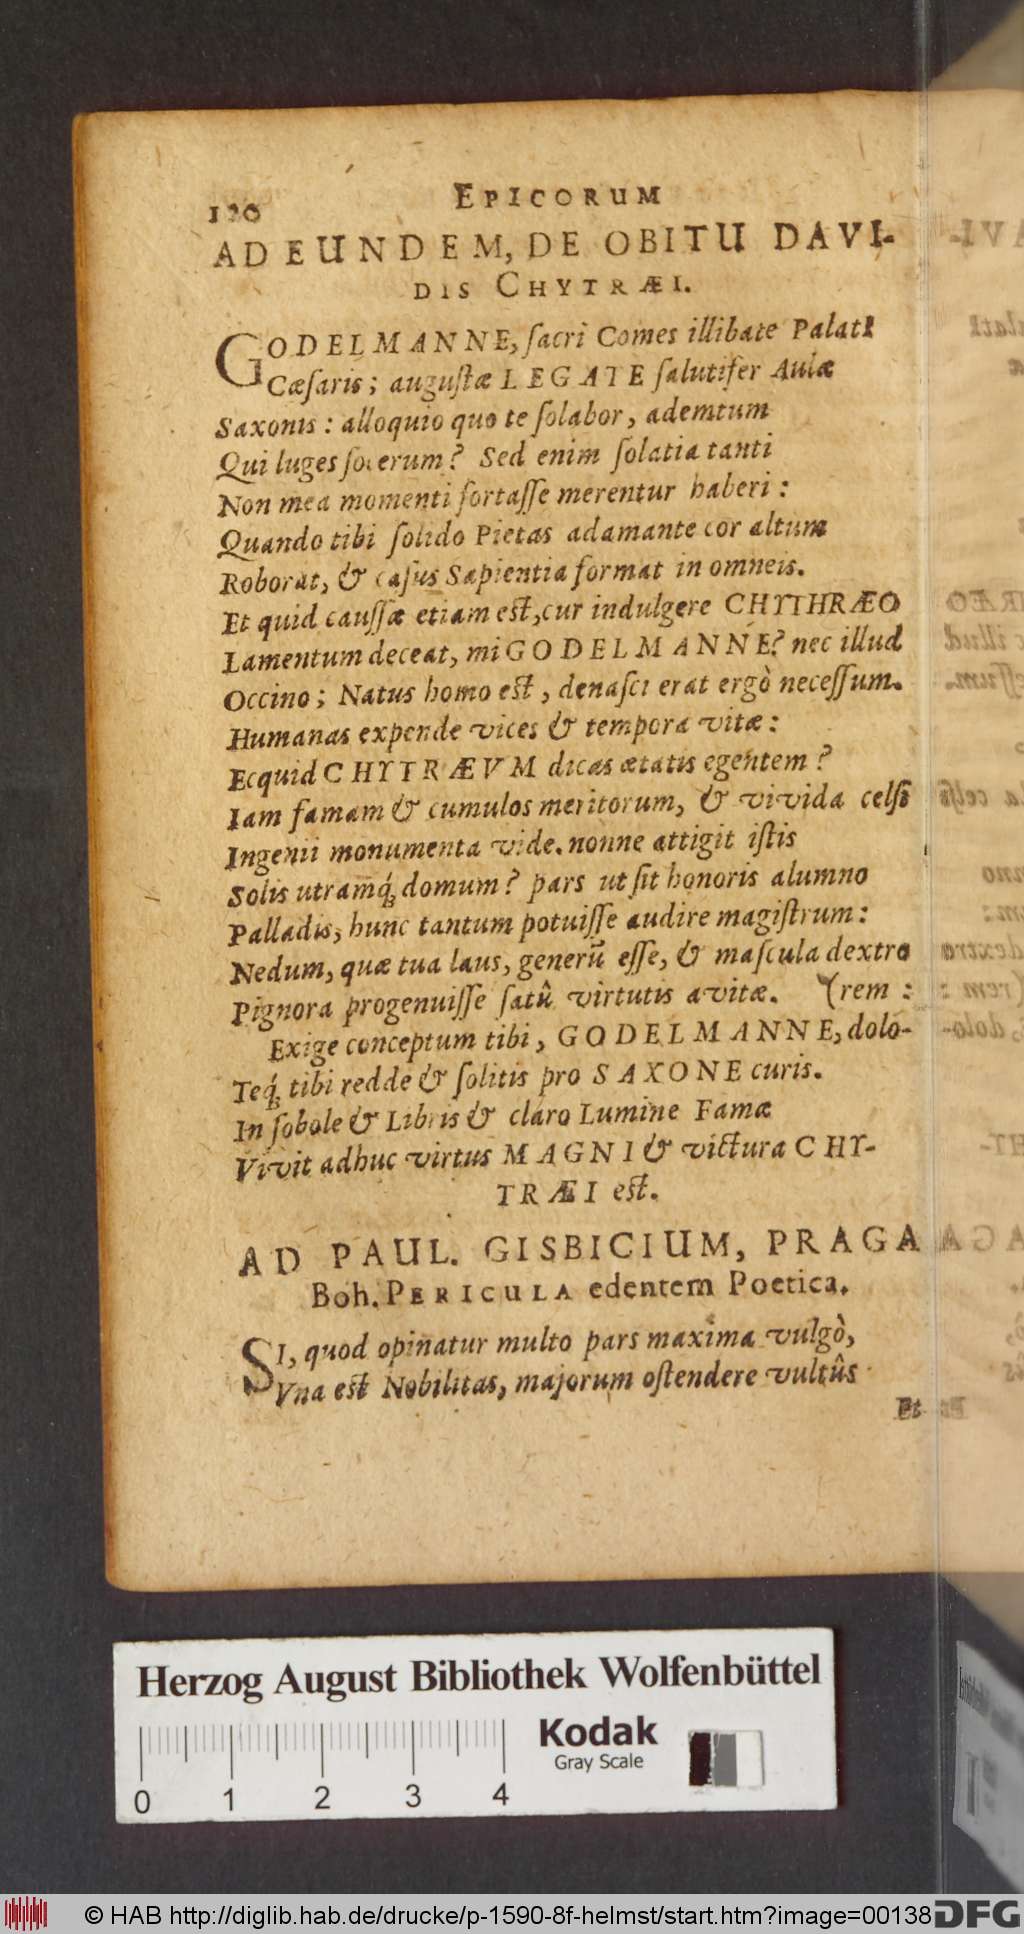 120 EPICORUM
AD EUNDEM, DE OBITU DAVI-
DIS CHYTRÆI.
GODELMANNE, ſacri Comes illibate Palatî
Cæſaris; auguſtæ LEGATE ſalutifer Aulæ
Saxonis: alloquio quo te ſolabor, ademtum
Qui luges ſocerum? Sed enim ſolatia tanti
Non mea momenti fortaſſe merentur haberi:
Quando tibi ſolido Pietas adamante cor altum
Roborat, & caſus Sapientia format in omneis.
Et quid cauſſæ etiam est, cur indulgere CHYTHRÆO
Lamentum deceat, mi GODELMANNE? nec illud
Occino; Natus homo est, denaſci erat ergò neceſſum.
Humanas expende vices & tempora vitæ:
Ecquid CHYTRÆVM dicas ætatis egentem?
Iam famam & cumulos meritorum, & vivida celſi
Ingenii monumenta vide. nonne attigit iſtis
Solis utramq́; domum? pars ut ſit honoris alumno
Palladis, hunc tantum potuiſſe audire magiſtrum:
Nedum, quæ tua laus, generū eſſe, & maſcula dextro
Pignora progenuiſſe ſatû virtutis avitæ. (rem:
Exige conceptum tibi, GODELMANNE, dolo-
Teq́; tibi redde & ſolitis pro SAXONE curis.
In ſobole & Libris & claro Lumine Famæ
Vivit adhuc virtus MAGNI & victura CHY-
TRÆI est.
AD PAUL. GISBICIUM, PRAGA
Boh. PERICULA edentem Poetica.
SI, quod opinatur multo pars maxima vulgò,
Vna est Nobilitas, majorum oſtendere vultûs
Et
Herzog August Bibliothek Wolfenbüttel
Kodak
Gray Scale
0 1 2 3 4
© HAB http://diglib.hab.de/drucke/p-1590-8f-helmst/start.htm?image=00138
DFG